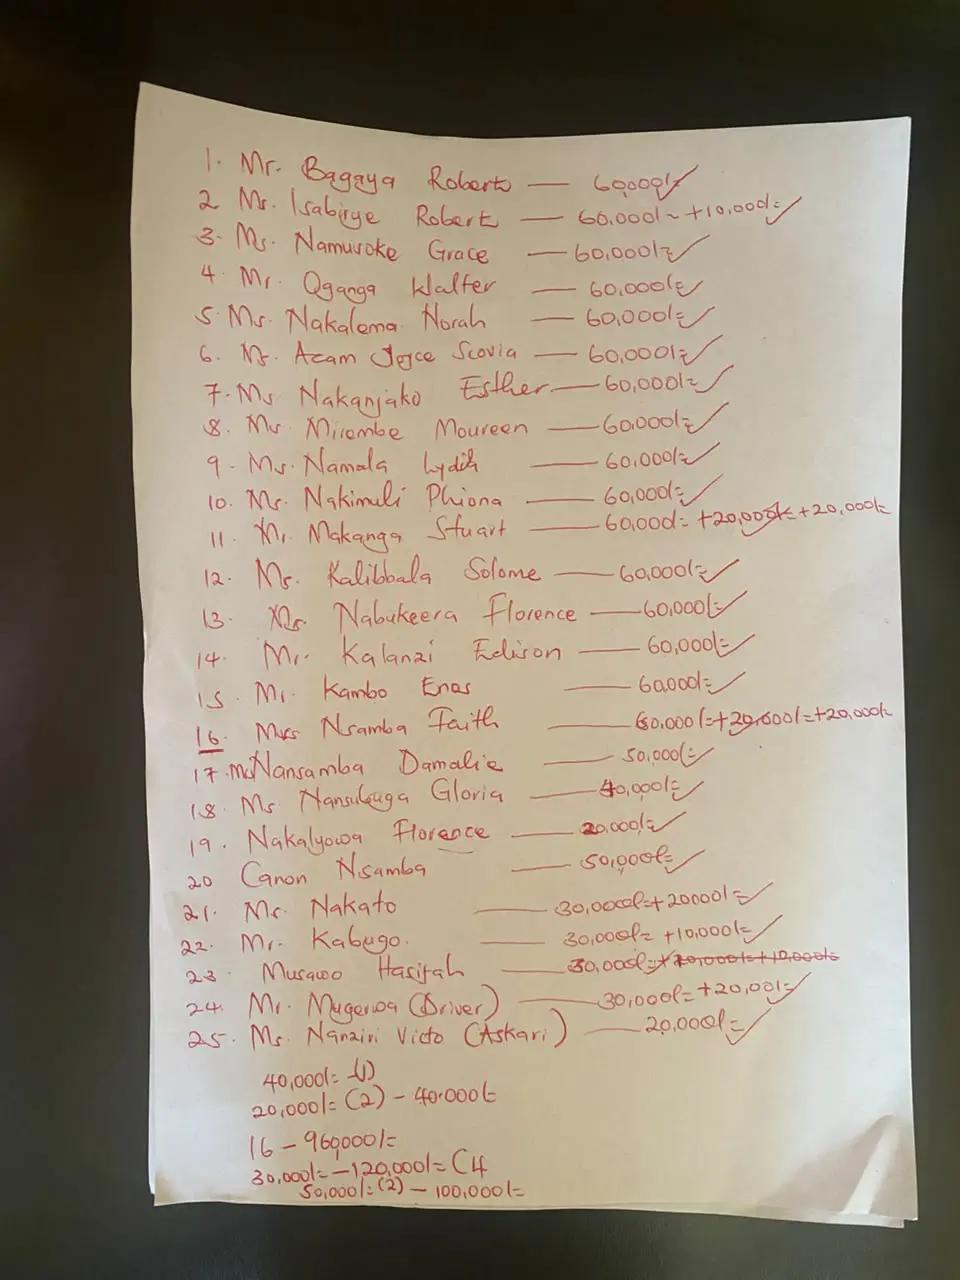 1. Mr. Bagaya Roberts — 60,000/=
2. Mr. Isabirye Robert — 60,000/= +10,000/=
3. Ms. Namusoke Grace — 60,000/=
4. Mr. Oganga Walter — 60,000/=
5. Ms. Nakalema Norah — 60,000/=
6. Ms. Acam Joyce Scovia — 60,000/=
7. Ms Nakanjako Esther — 60,000/=
8. Ms Mirembe Moureen — 60,000/=
9. Ms. Namala Lydia — 60,000/=
10. Ms. Nakimuli Phiona — 60,000/=
11. Mr. Makanga Stuart — 60,000/= +20,000/= +20,000/=
12. Ms. Kalibbala Solome — 60,000/=
13. Ms. Nabukeera Florence — 60,000/=
14. Mr. Kalanzi Edison — 60,000/=
15. Mr. Kambo Enos — 60,000/=
16. Mrs Nsamba Faith — 60,000/=+20,000/=+20,000/=
17. Ms Nansamba Damalie — 50,000/=
18. Ms. Nansubuga Gloria — 40,000/=
19. Nakalyowa Florence — 20,000/=
20 Canon Nsamba — 50,000/=
21. Mr. Nakato — 30,000/=+20000/=
22. Mr. Kabugo. — 30,000/= +10,000/=
23. Musawo Hasifah — 30,000/=+20,000/=+10,000/=
24. Mr. Mugerwa (Driver) — 30,000/=+20,000/=
25. Ms. Nanziri Victo (Askari) — 20,000/=
40,000/= (1)
20,000/= (2) – 40.000/=
16 – 960,000/=
30,000/= – 120,000/= (4
50,000/= (2) – 100,000/=